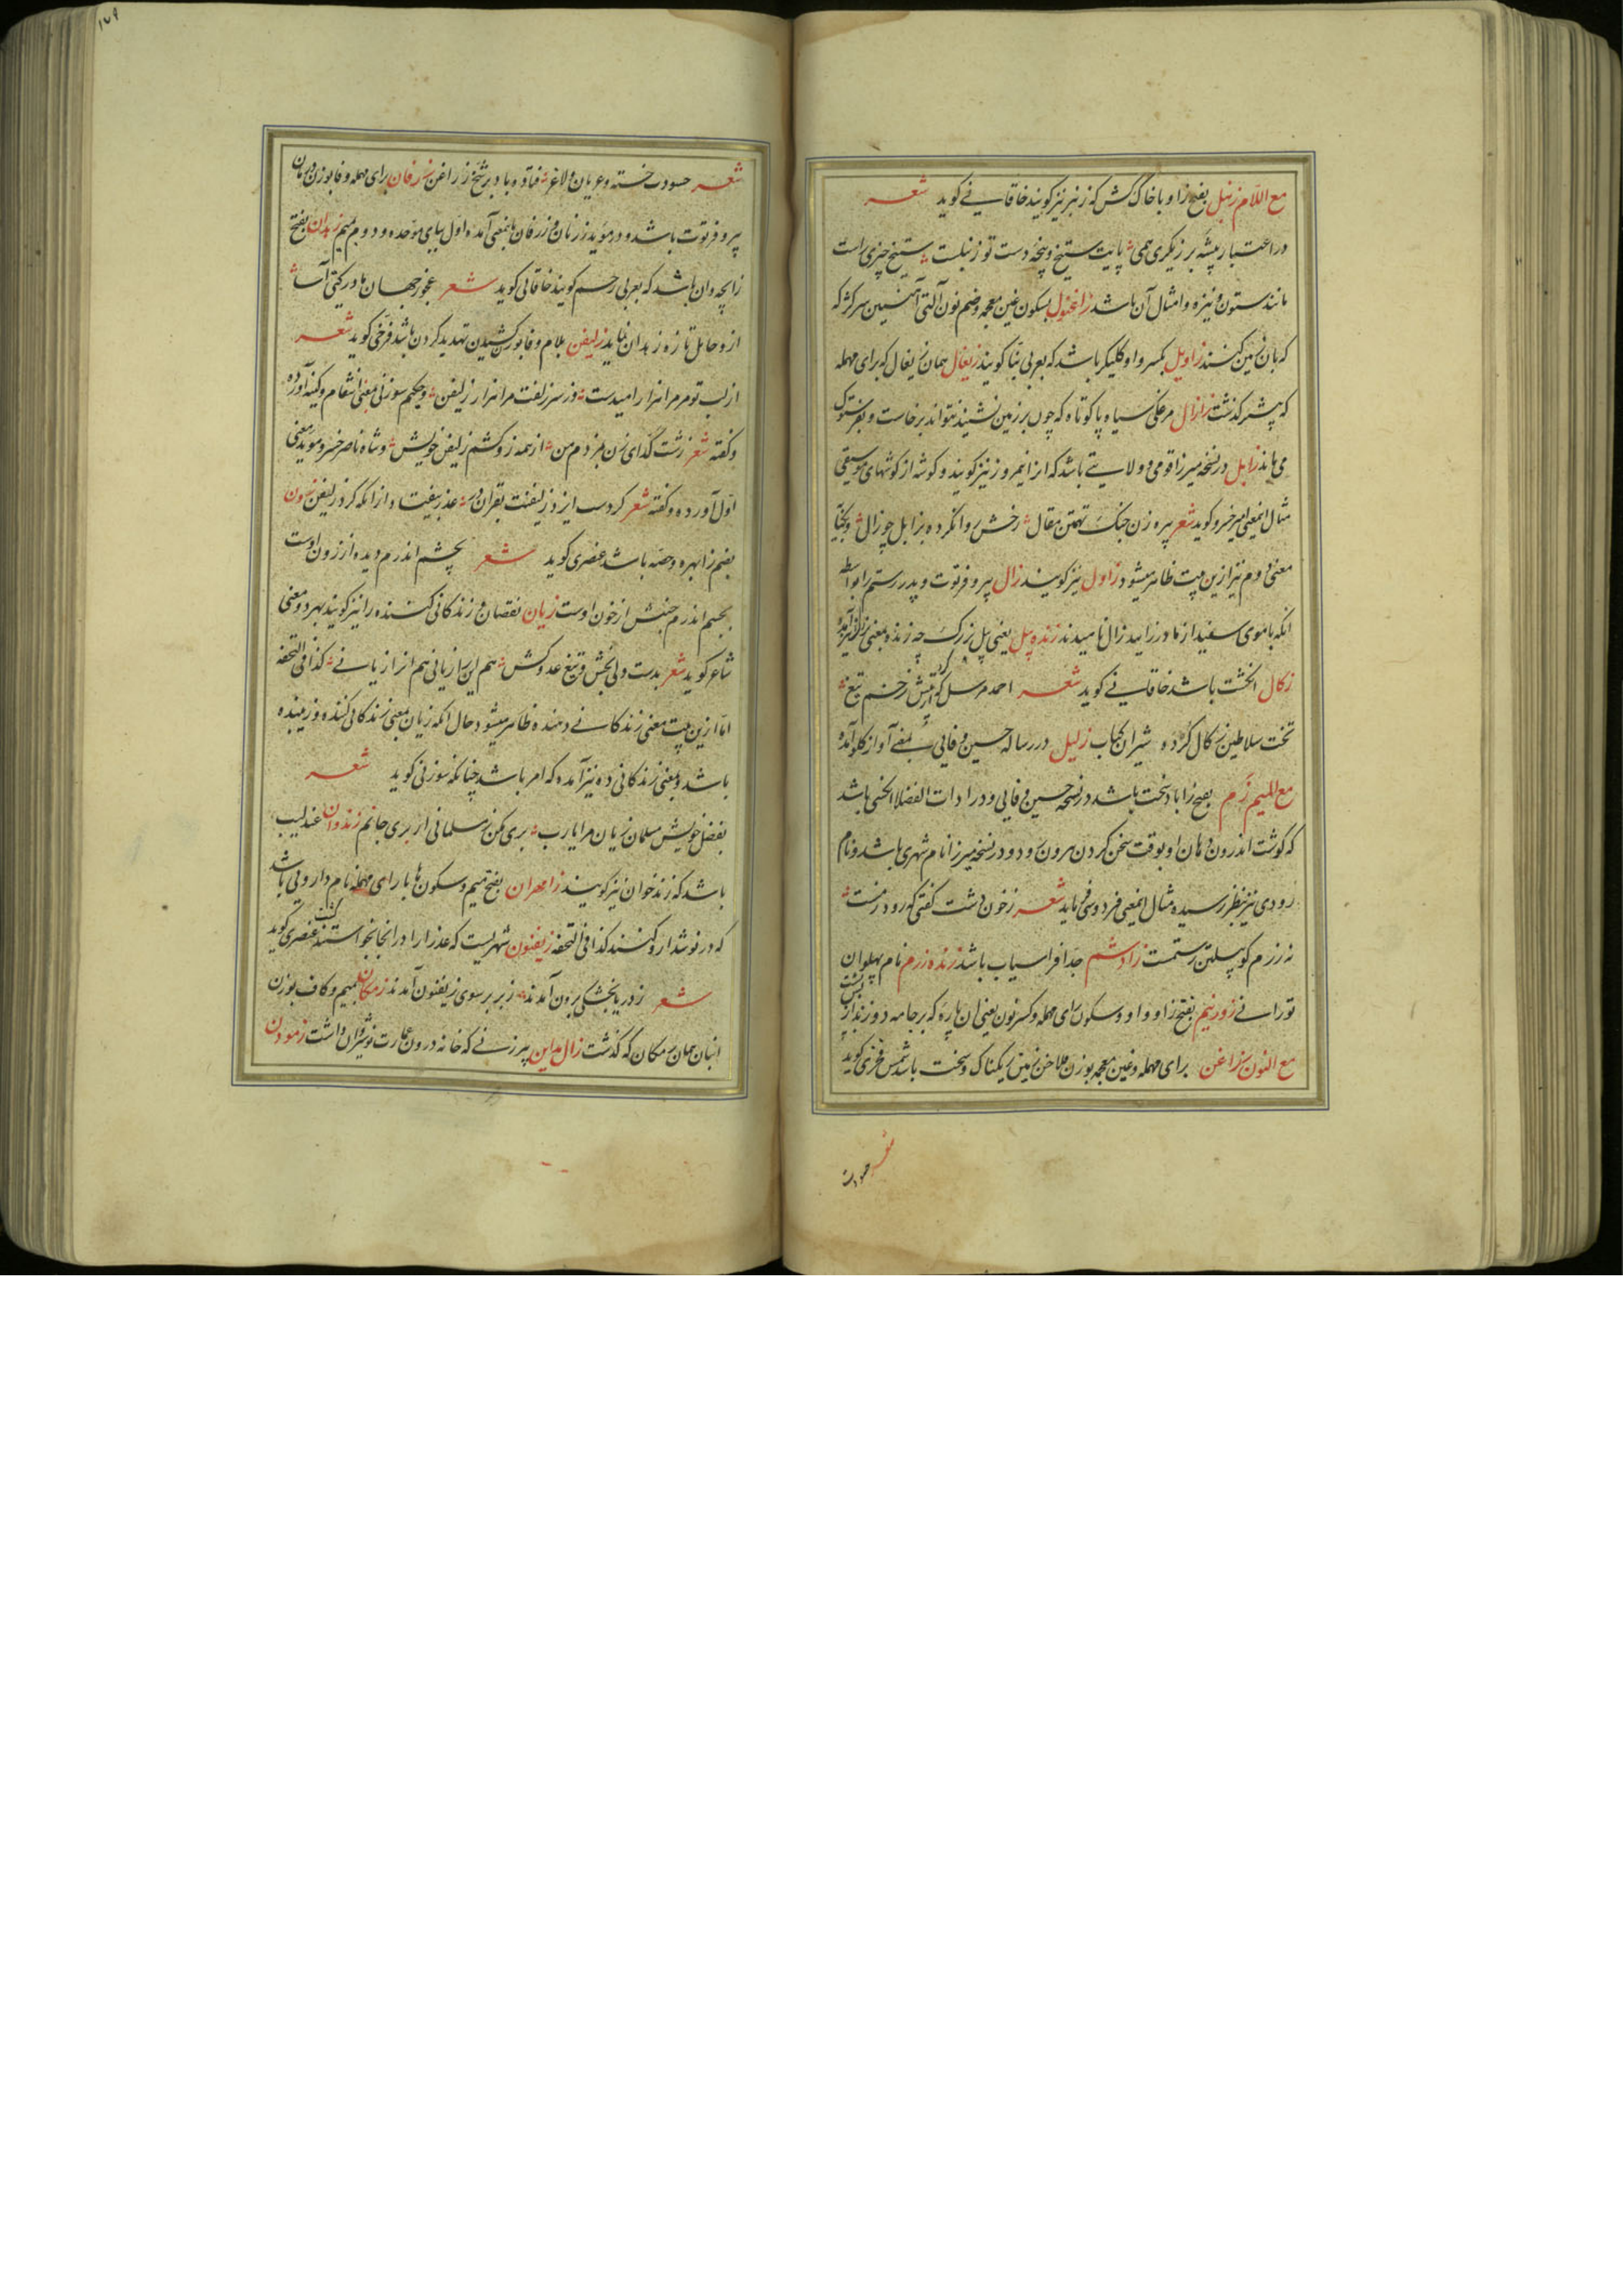 مع اللام زنبل بفتح زا و با خاک کش که زنبر نیز گویند خاقانی گوید شعر
در اعتبار پیشه برزیگری همی پایت ستیخ و پنجهٔ دست تو زنبلست ستیخ چیزی راست
مانند ستون و نیزه و امثال آن باشد زاغنول بسکون غین معجمه و ضم نون آلتی آهنین سرکژ که
که بان زمین کنند زاویل بکسر واو کلیکر باشد که بعربی بنا گویند زیغال همان ریغال که برای مهمله
که پیشتر گذشت زازال مرغکی سیاه پا کوتاه که چون بر زمین نشیند نتواند برخاست و بفرستوک
می ماند زابل در نسخه میرزا قومی و ولایتی باشد که انرا نیمروز نیز گویند و گوشه از گوشهای موسیقی
مثال اینمعنی امیر خسرو گوید شعر پیره زن جنک تهمتن مقال رخش روانکرده بزابل چو زال
معنی دوم نیز ازین بیت ظاهر میشود زاول نیز گویند زال پیر و فرتوت و پدر رستم را بواسطه
انکه با موی سفید از مادر زایید زال نامیدند زنده پیل یعنی پیل بزرک چه زنده بمعنی بزرک نیز آمده
زکال انکشت باشد خاقانی گوید شعر احمد مرسل که کرد از تپش زخم تیغ
تخت سلاطین زکال کرده شیران کباب زلیل در رساله حسین وفایی بمعنی آواز گلو آمده
مع المیم زم بفتح زا باد سخت باشد در نسخه حسین وفایی و در ادات الفضلا باشد
که گوشت اندرون دهان او بوقت سخن کردن بیرون رود و در نسخه میرزا نام شهری باشد و نام
رودی نیز بنظر رسیده مثال اینمعنی فردوسی فرماید شعر ز خون دشت گفتی که رود زمست
نه رزم گو پیلتن رستمست زادشم جد افراسیاب باشد زنده رزم نام پهلوان
تورانی زورنیم بفتح زا و واو و سکون رای مهمله و کسر نون یعنی ان پاره که بر جامه دوزند از
مع النون زراغن برای مهمله و غین معجمه بوزن فلاخن زمین ریکناک و سخت باشد شمس فخری گوید
شعر
حسودت
۱۷۹
شعر حسودت خسته و عریان و لاغر فتاده باد بر شخ زراغن زرفان برای مهمله و فا بوزن درمان
پیر و فرتوت باشد و در مؤید زربان و زرفان بمعنی آمده اول ببای موحده و دوم بمیم زهدان بفتح
زا بچه دان باشد که بعربی رحم گویند خاقانی گوید شعر عجوز جهان مادر گیتی آسا
ازو حامل تازه زهدان نماید زلیفن بلام و فا بوزن کشیدن تهدید کردن باشد فرخی گوید شعر
از لب تو مر مرا هزار امیدست وز سر زلفت مرا هزار زلیفن و حکیم سوزنی بمعنی انتقام و کینه آورده
و گفته شعر زشت گدای زن بمزدم من از همه زو کشم زلیفن خویش و شاه ناصر خسرو مؤید معنی
اول آورده و گفته شعر کردست ایزد زلیفنت بقران در عذر بیفتاد از انکه کرد زلیفن زون
بضم زا بهره و حصه باشد عنصری گوید شعر بچشم اندرم دیده از زون اوست
بجسم اندرم جنبش از خون اوست زیان نقصان و زندگانی کننده را نیز گویند بهر دو معنی
شاعر گوید شعر بدست ولی بخش و تیغ عدو کش هم این را زیانی هم آنرا زیانی کذا فی التحفه
اما ازین بیت معنی زندگانی دهنده ظاهر میشود حال آنکه زیان بمعنی زندگانی کننده و زمینده
باشد و بمعنی زندگانی ده نیز آمده که امر باشد چنانکه سوزنی گوید شعر
بفضل خویش مسلمان زیان مرا یارب بری مکن ز مسلمانی ار بری جانم زندوان عندلیب
باشد که زندخوان نیز گویند زامهران بفتح میم و سکون ها با رای مهمله نام دارویی باشد
که در نوشدارو کنند کذا فی التحفه زیفنون شهریست که عذرا را در انجا بخواستند کشت عنصری گوید
شعر ز دریا بخشکی برون آمدند ز بربر سوی زیفنون آمدند زمکان بمیم و کاف بوزن
انبان همان رمکان که گذشت زال مداین پیرزنی که خانه درون عمارت نوشیروان داشت زمودن